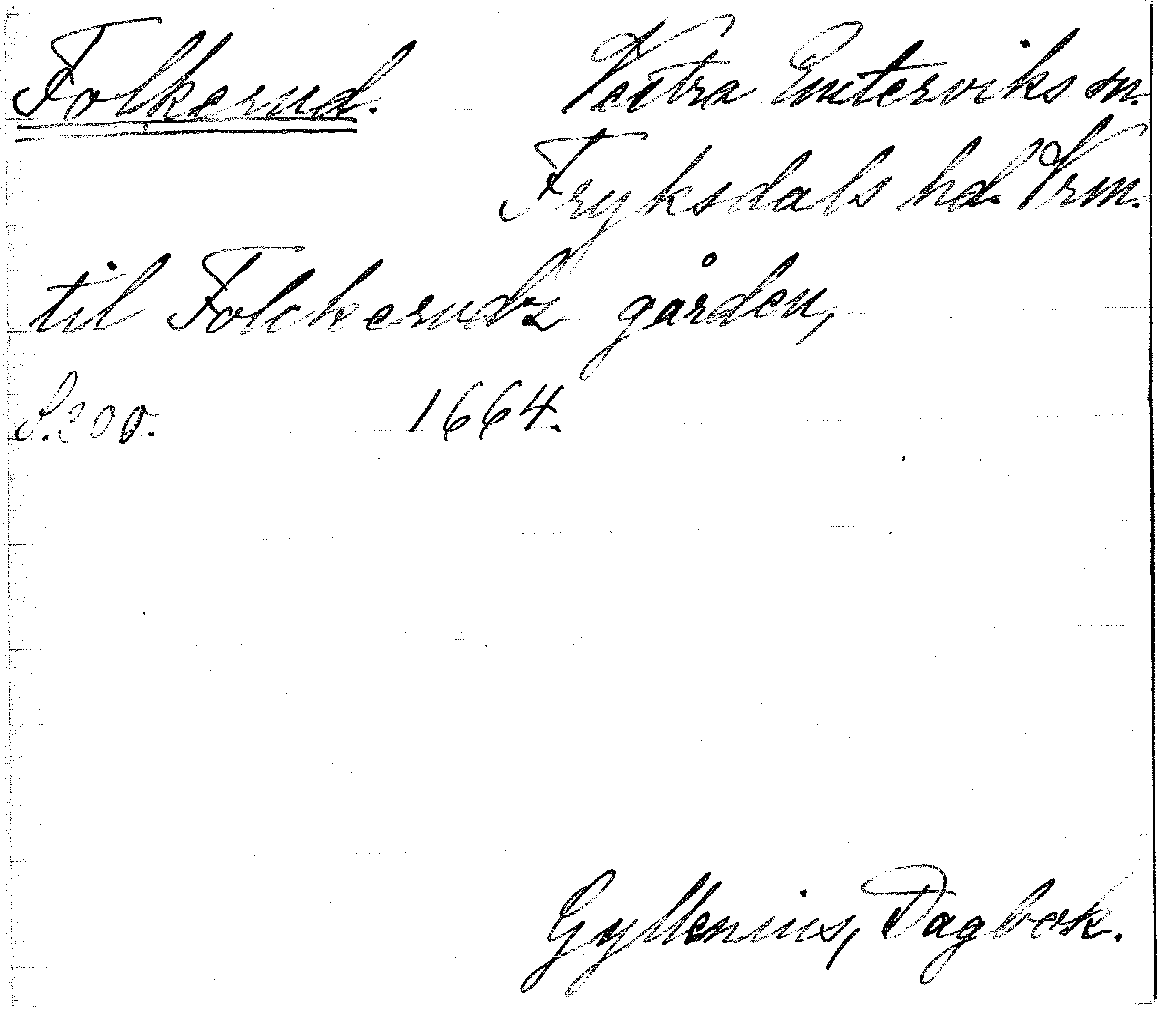 Folkerud. Västra Emterviks sn.
Fryksdals hd. Vrm.
til Folckerudz gården,
S. 200. 1664.
Gyllenius, Dagbok.